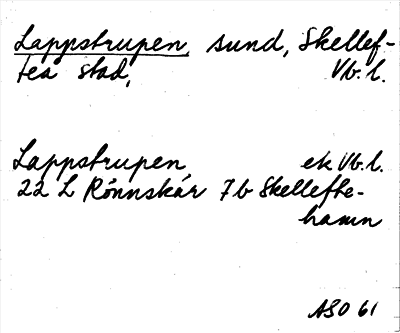 Lappstrupen, sund, Skellef-
teå stad, Vb. l.
Lappstrupen ek Vb. l.
22 L Rönnskär 7b Skellefte-
hamn
ASO 61